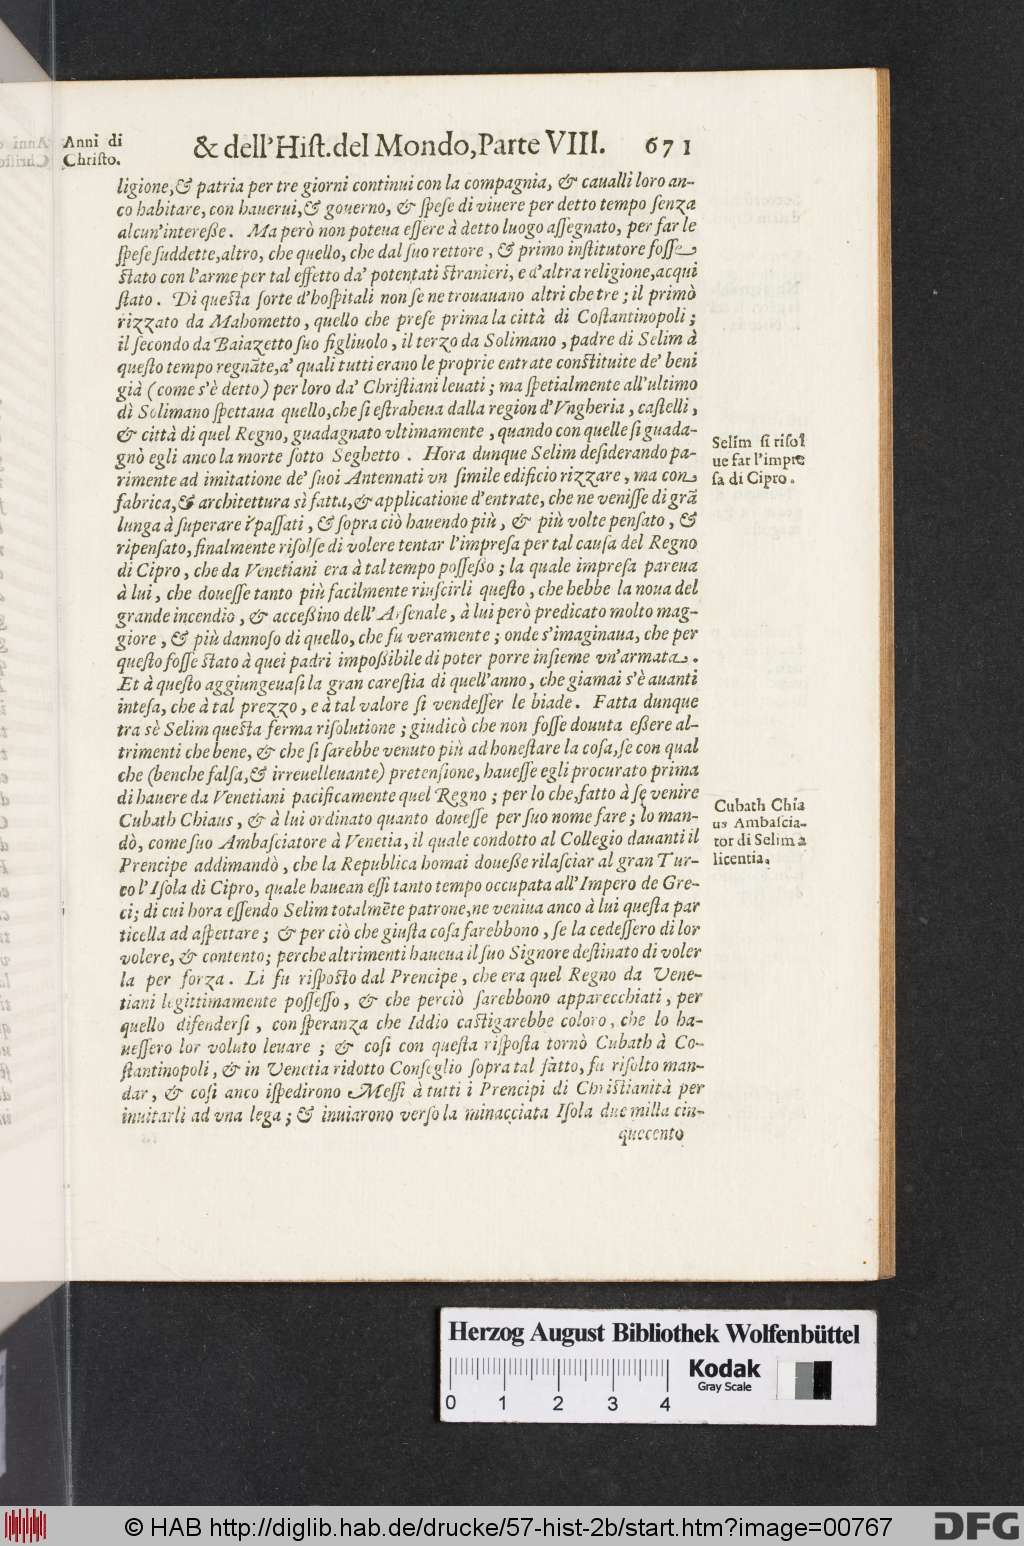 Anni di
Christo.
& dell'Hiſt. del Mondo, Parte VIII. 671
ligione, & patria per tre giorni continui con la compagnia, & caualli loro an-
co habitare, con hauerui, & gouerno, & ſpeſe di viuere per detto tempo ſenza
alcun'intereſſe. Ma però non poteua eſſere à detto luogo aſſegnato, per far le
ſpeſe ſuddette, altro, che quello, che dal ſuo rettore, & primo inſtitutore foſſe
ſtato con l'arme per tal effetto da' potentati ſtranieri, e d'altra religione, acqui
ſtato. Di queſta ſorte d'hoſpitali non ſe ne trouauano altri che tre; il primò
rizzato da Mahometto, quello che preſe prima la città di Coſtantinopoli;
il ſecondo da Baiazetto ſuo figliuolo, il terzo da Solimano, padre di Selim à
queſto tempo regnāte, a' quali tutti erano le proprie entrate conſtituite de' beni
già (come s'è detto) per loro da' Chriſtiani leuati; ma ſpetialmente all'ultimo
dì Solimano ſpettaua quello, che ſi eſtraheua dalla region d'Vngheria, caſtelli,
& città di quel Regno, guadagnato vltimamente, quando con quelle ſi guada-
gnò egli anco la morte ſotto Seghetto. Hora dunque Selim deſiderando pa-
rimente ad imitatione de' ſuoi Antennati vn ſimile edificio rizzare, ma con
fabrica, & architettura sì fatta, & applicatione d'entrate, che ne veniſſe di grā
lunga à ſuperare i paſſati, & ſopra ciò hauendo più, & più volte penſato, &
ripenſato, finalmente riſolſe di volere tentar l'impreſa per tal cauſa del Regno
di Cipro, che da Venetiani era à tal tempo poſſeſſo; la quale impreſa pareua
à lui, che doueſſe tanto più facilmente riuſcirli queſto, che hebbe la noua del
grande incendio, & acceßino dell'Arſenale, à lui però predicato molto mag-
giore, & più dannoſo di quello, che fu veramente; onde s'imaginaua, che per
queſto foſſe ſtato à quei padri impoßibile di poter porre inſieme vn'armata.
Et à queſto aggiungeuaſi la gran careſtia di quell'anno, che giamai s'è auanti
inteſa, che à tal prezzo, e à tal valore ſi vendeſſer le biade. Fatta dunque
tra sè Selim queſta ferma riſolutione; giudicò che non foſſe douuta eßere al-
trimenti che bene, & che ſi ſarebbe venuto più ad honeſtare la coſa, ſe con qual
che (benche falſa, & irreuelleuante) pretenſione, haueſſe egli procurato prima
di hauere da Venetiani pacificamente quel Regno; per lo che, fatto à ſe venire
Cubath Chiaus, & à lui ordinato quanto doueſſe per ſuo nome fare; lo man-
dò, come ſuo Ambaſciatore à Venetia, il quale condotto al Collegio dauanti il
Prencipe addimandò, che la Republica homai doueße rilaſciar al gran Tur-
co l'Iſola di Cipro, quale hauean eſſi tanto tempo occupata all'Impero de Gre-
ci; di cui hora eſſendo Selim totalmēte patrone, ne veniua anco à lui queſta par
ticella ad aſpettare; & per ciò che giuſta coſa farebbono, ſe la cedeſſero di lor
volere, & contento; perche altrimenti haueua il ſuo Signore deſtinato di voler
la per forza. Li fu riſpoſto dal Prencipe, che era quel Regno da Vene-
tiani legittimamente poſſeſſo, & che perciò ſarebbono apparecchiati, per
quello difenderſi, con ſperanza che Iddio caſtigarebbe coloro, che lo ha-
ueſſero lor voluto leuare; & coſi con queſta riſpoſta tornò Cubath à Co-
ſtantinopoli, & in Venetia ridotto Conſeglio ſopra tal fatto, fu riſolto man-
dar, & coſi anco iſpedirono Meſſi à tutti i Prencipi di Chriſtianità per
inuitarli ad vna lega; & inuiarono verſo la minacciata Iſola due milla cin-
quecento
Selim ſi riſol
ue far l'impre
ſa di Cipro.
Cubath Chia
us Ambaſcia-
tor di Selim a
licentia.
Herzog August Bibliothek Wolfenbüttel
Kodak
Gray Scale
0 1 2 3 4
© HAB http://diglib.hab.de/drucke/57-hist-2b/start.htm?image=00767
DFG